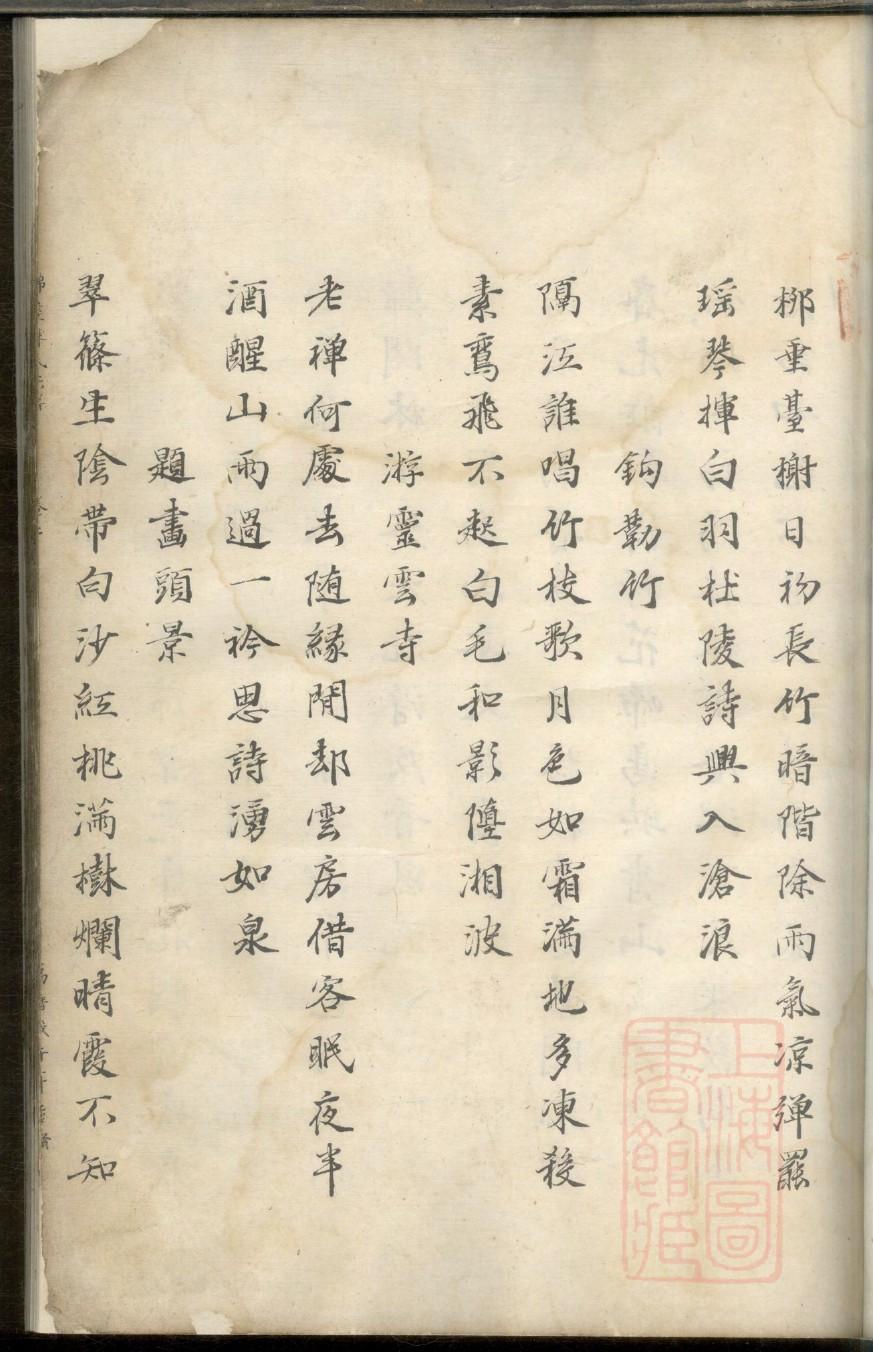 栁垂臺榭日初長竹暗階除雨氣凉弹罷
瑶琴揮白羽杜陵詩興入滄浪
鈎勒竹
隔江誰唱竹枝歌月色如霜滿地多凍殺
素鸞飛不起白毛和影墮湘波
游靈雲寺
老禅何處去随緣閒却雲房借客眠夜半
酒醒山雨過一衿思詩湧如泉
題畫頭景
翠篠生陰帶白沙紅桃滿樹爛晴霞不知
上海圖
書館藏